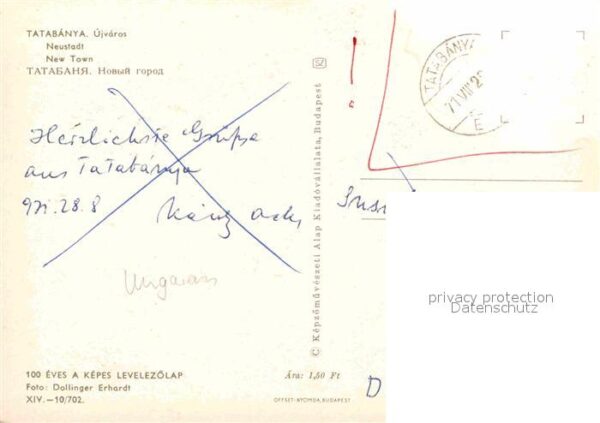 TATABÁNYA. Újváros
Neustadt
New Town
ТАТАБАНЯ. Новый город
Herzlichste Grüße
aus Tatabánya
971.28.8
Ungarn
100 ÉVES A KÉPES LEVELEZŐLAP
Foto: Dollinger Erhardt
XIV.—10/702.
© Képzőművészeti Alap Kiadóvállalata, Budapest
Ára: 1,50 Ft
OFFSET-NYOMDA, BUDAPEST
!
TATABÁNYA
71 VIII 2
E
privacy protection
Datenschutz
D